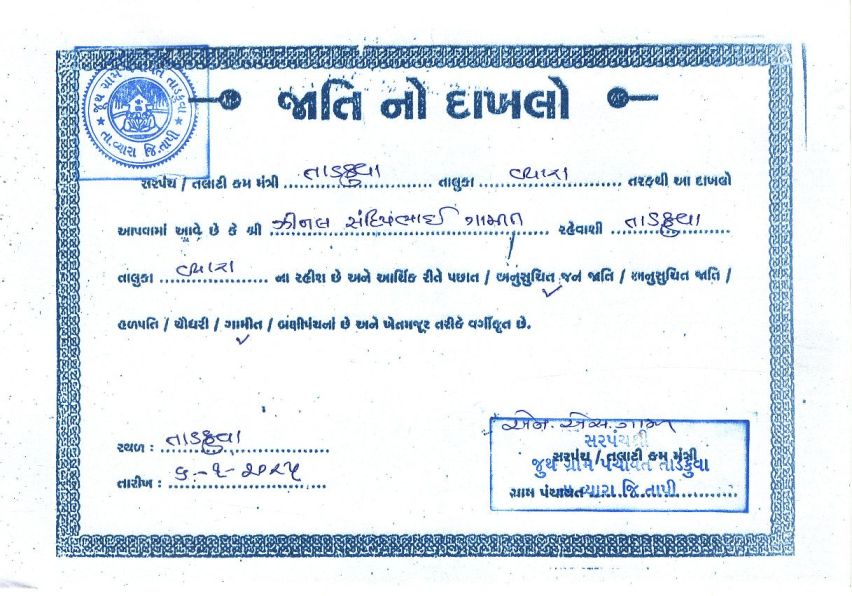 જુથ ગ્રામ પંચાયત તાડકુવા
તા.વ્યારા જિ.તાપી
જાતિ નો દાખલો
સરપંચ / તલાટી કમ મંત્રી તાડકુવા તાલુકા વ્યારા તરફથી આ દાખલો
આપવામાં આવે છે કે શ્રી ઝીનલ સંદિપભાઈ ગામીત રહેવાશી તાડકુવા
તાલુકા વ્યારા ના રહીશ છે અને આર્થિક રીતે પછાત / અનુસુચિત જન જાતિ / અનુસુચિત જાતિ /
હળપતિ / ચૌધરી / ગામીત / બક્ષીપંચનાં છે અને ખેતમજૂર તરીકે વર્ગીકૃત છે.
સ્થળ : તાડકુવા
તારીખ : ૬-૧-૨૦૨૫
એન. એસ. ગામીત
સરપંચશ્રી
સરપંચ / તલાટી કમ મંત્રી
જુથ ગ્રામ પંચાયત તાડકુવા
ગ્રામ પંચાયત
વ્યારા જિ.તાપી